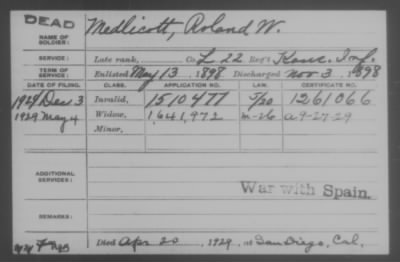 DEAD
NAME OF SOLDIER: Medlicott, Roland W.
SERVICE: Late rank, Co. L 22 Reg't Kans. Inf.
TERM OF SERVICE: Enlisted May 13, 1898 Discharged Nov 3, 1898
DATE OF FILING. CLASS. APPLICATION NO. LAW. CERTIFICATE NO.
1924 Dec 3 Invalid, 1510477 1261066
1929 May 4 Widow, 1,641,972 M-26 a 9-27-29
Minor,
ADDITIONAL SERVICES:
War with Spain.
REMARKS:
Died Apr 20, 1929, at San Diego, Cal.